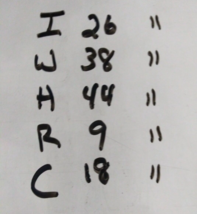 I 26 "
W 38 "
H 44 "
R 9 "
C 18 "